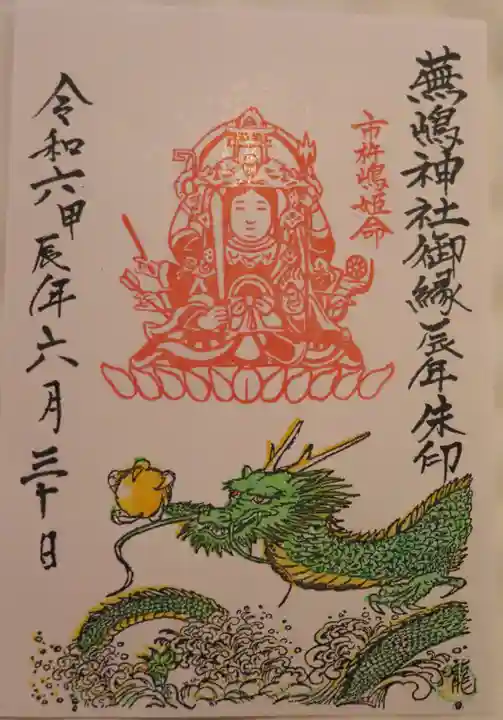 蕪嶋神社御縁辰年朱印
市杵嶋姫命
令和六甲辰年六月三十日
龍